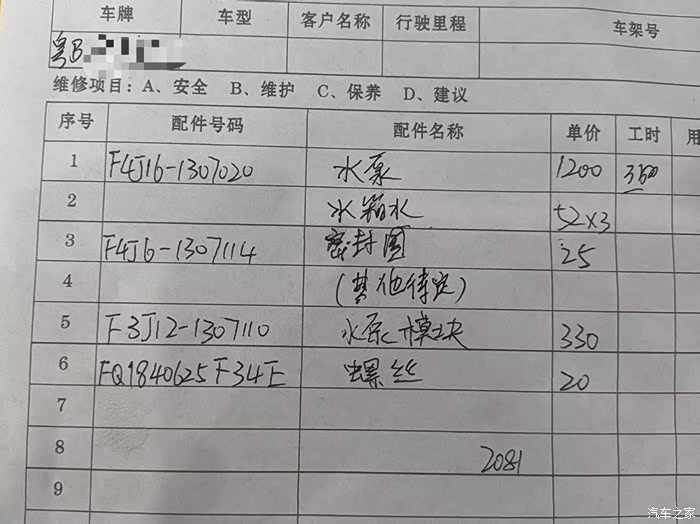 车牌 车型 客户名称 行驶里程 车架号
粤B
维修项目：A、安全 B、维护 C、保养 D、建议
序号 配件号码 配件名称 单价 工时 用
1 F4J16-1307020 水泵 1200 350
2 水箱水 52×3
3 F4J6-1307114 密封圈 25
4 (其他待定)
5 F3J12-1307110 水泵模块 330
6 FQ1840625F34E 螺丝 20
7
8 2081
9
汽车之家